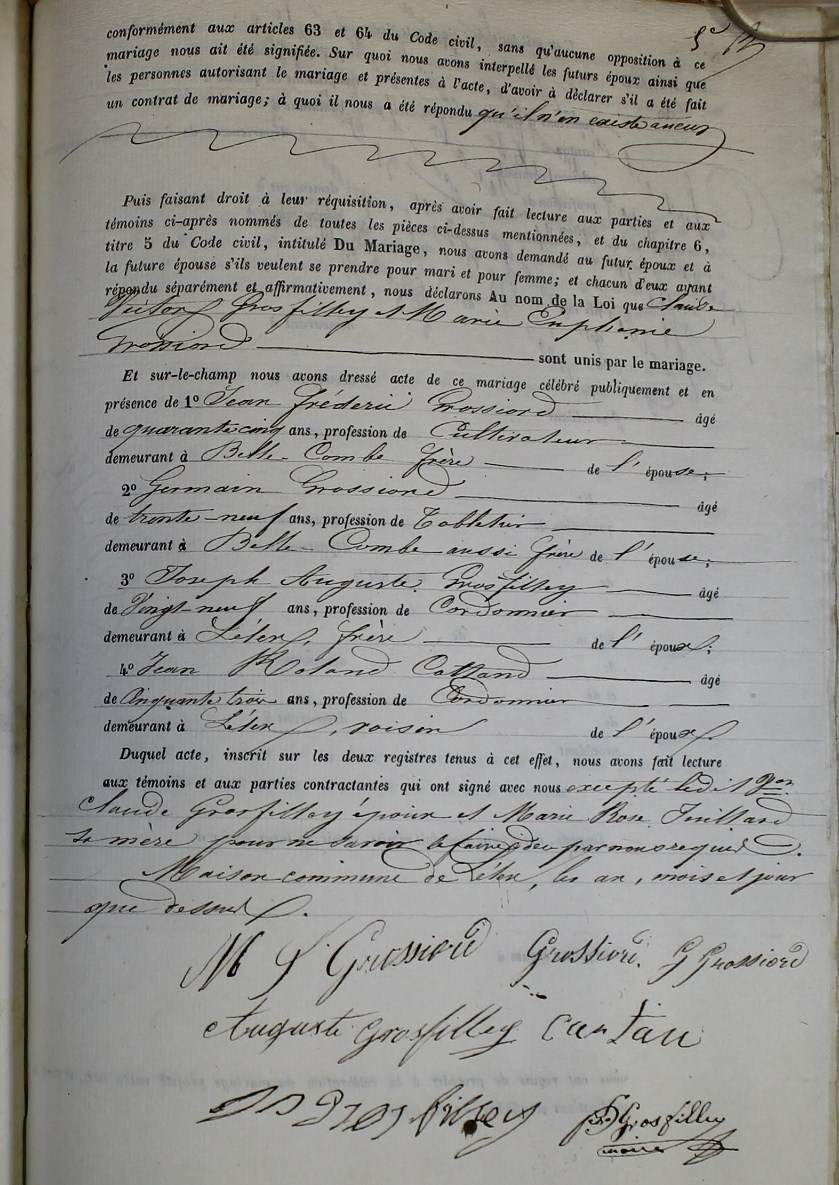 conformément aux articles 63 et 64 du Code civil, sans qu'aucune opposition à ce
mariage nous ait été signifiée. Sur quoi nous avons interpellé les futurs époux ainsi que
les personnes autorisant le mariage et présentes à l'acte, d'avoir à déclarer s'il a été fait
un contrat de mariage; à quoi il nous a été répondu qu'il n'en existe aucun
Puis faisant droit à leur réquisition, après avoir fait lecture aux parties et aux
témoins ci-après nommés de toutes les pièces ci-dessus mentionnées, et du chapitre 6,
titre 5 du Code civil, intitulé Du Mariage, nous avons demandé au futur époux et à
la future épouse s'ils veulent se prendre pour mari et pour femme; et chacun d'eux ayant
répondu séparément et affirmativement, nous déclarons Au nom de la Loi que Claude
Victor Grosfilley et Marie Euphanie
Grossiord sont unis par le mariage.
Et sur-le-champ nous avons dressé acte de ce mariage célébré publiquement et en
présence de 1º Jean Fréderic Grossiord âgé
de quarante cinq ans, profession de Cultivateur
demeurant à Belle-Combe frère de l'épouse;
2º Germain Grossiord âgé
de trente-neuf ans, profession de Tabletier
demeurant à Belle-Combe aussi frère de l'épouse;
3º Joseph Auguste Grosfilley âgé
de Vingt-neuf ans, profession de Cordonnier
demeurant à Lélex, frère de l'époux;
4º Jean Roland Cattand âgé
de Cinquante trois ans, profession de Cordonnier
demeurant à Lélex, voisin de l'époux.
Duquel acte, inscrit sur les deux registres tenus à cet effet, nous avons fait lecture
aux témoins et aux parties contractantes qui ont signé avec nous excepté ledit
Claude Grosfilley époux et Marie Rose Juillard
sa mère pour ne savoir le faire de ce par nous requis.
Maison commune de Lélex, les an, mois et jour
que dessus.
M Grossiord Grossiord. G Grossiord
Auguste Grosfilley
Grosfilley Grosfilley
maire